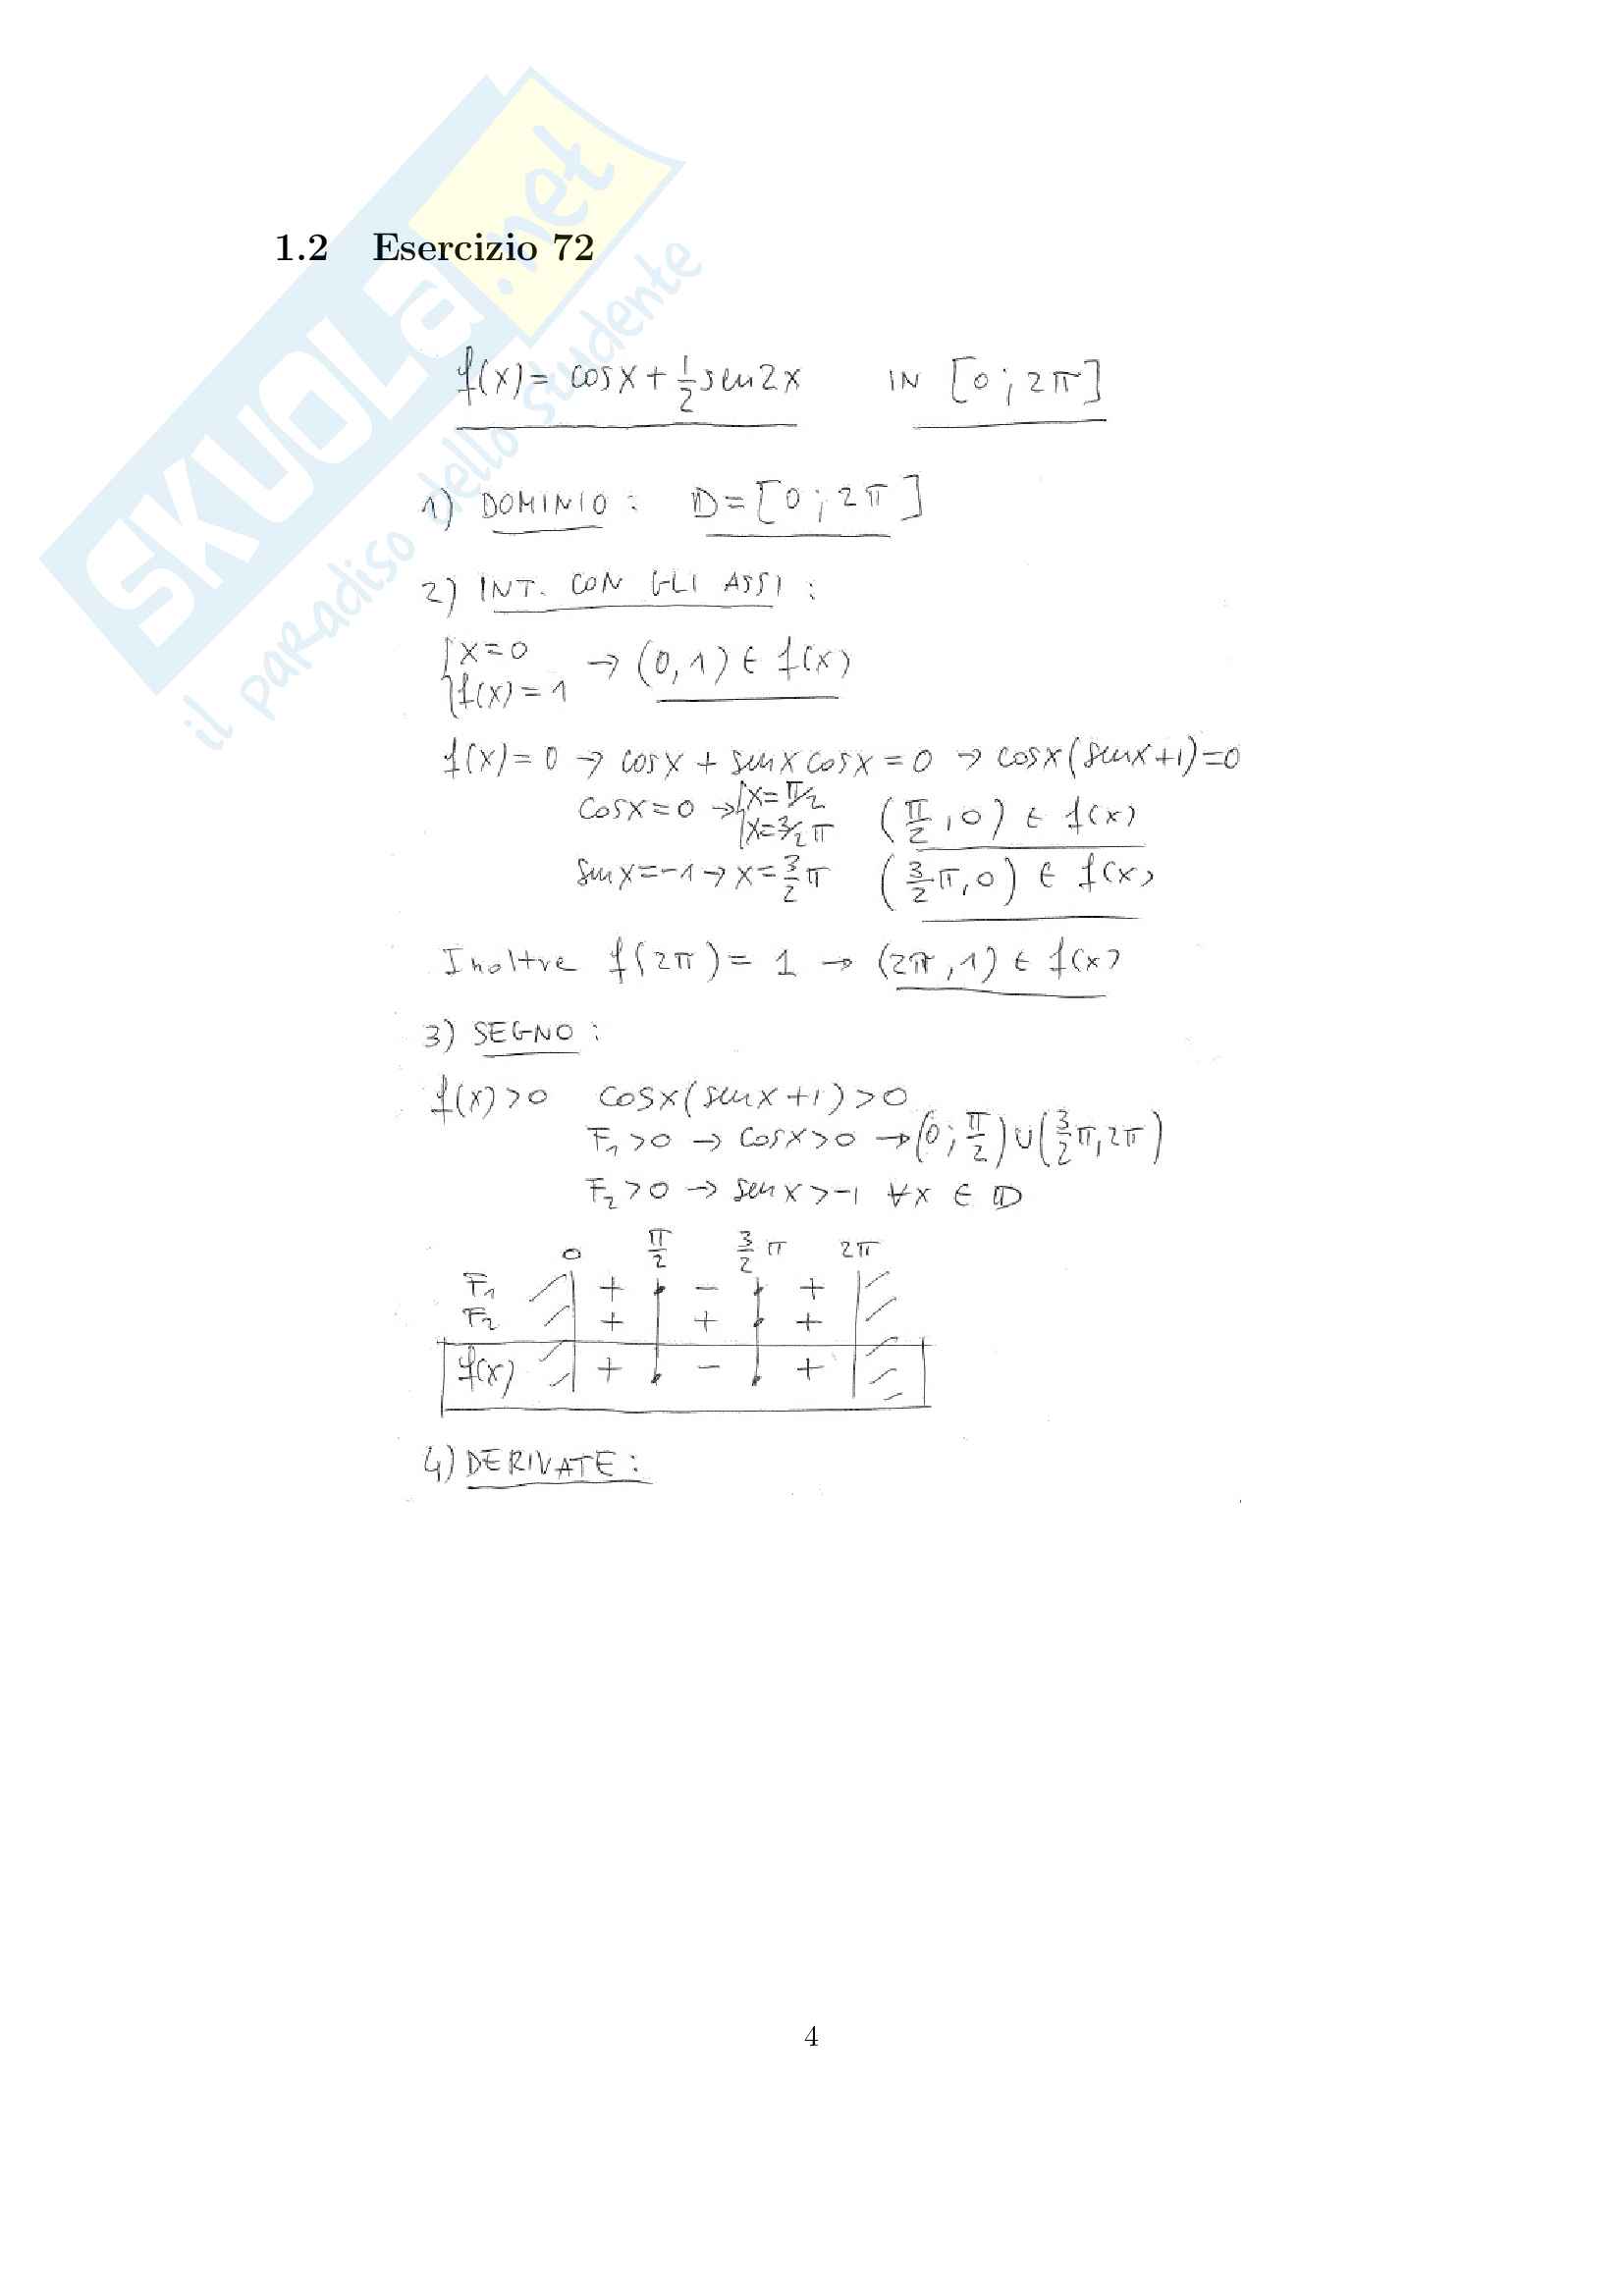 SKUOLa.net
il paradiso dello studente
1.2 Esercizio 72
f(x)= cosx+½sen2x IN [0;2π]
1) DOMINIO: D=[0;2π]
2) INT. CON GLI ASSI:
{x=0
{f(x)=1 → (0,1) ∈ f(x)
f(x)=0 → cosx + senxcosx=0 → cosx(senx+1)=0
cosx=0 → {x=π/2 {x=3/2π (π/2,0) ∈ f(x)
senx=-1→x=3/2π (3/2π,0) ∈ f(x)
Inoltre f(2π)= 1 → (2π,1) ∈ f(x)
3) SEGNO:
f(x)>0 cosx(senx+1)>0
F₁>0 → cosx>0 →(0;π/2)∪(3/2π,2π)
F₂>0 → senx>-1 ∀x ∈ D
0 π/2 3/2π 2π
F₁ + - +
F₂ + + +
f(x) + - +
4) DERIVATE:
4